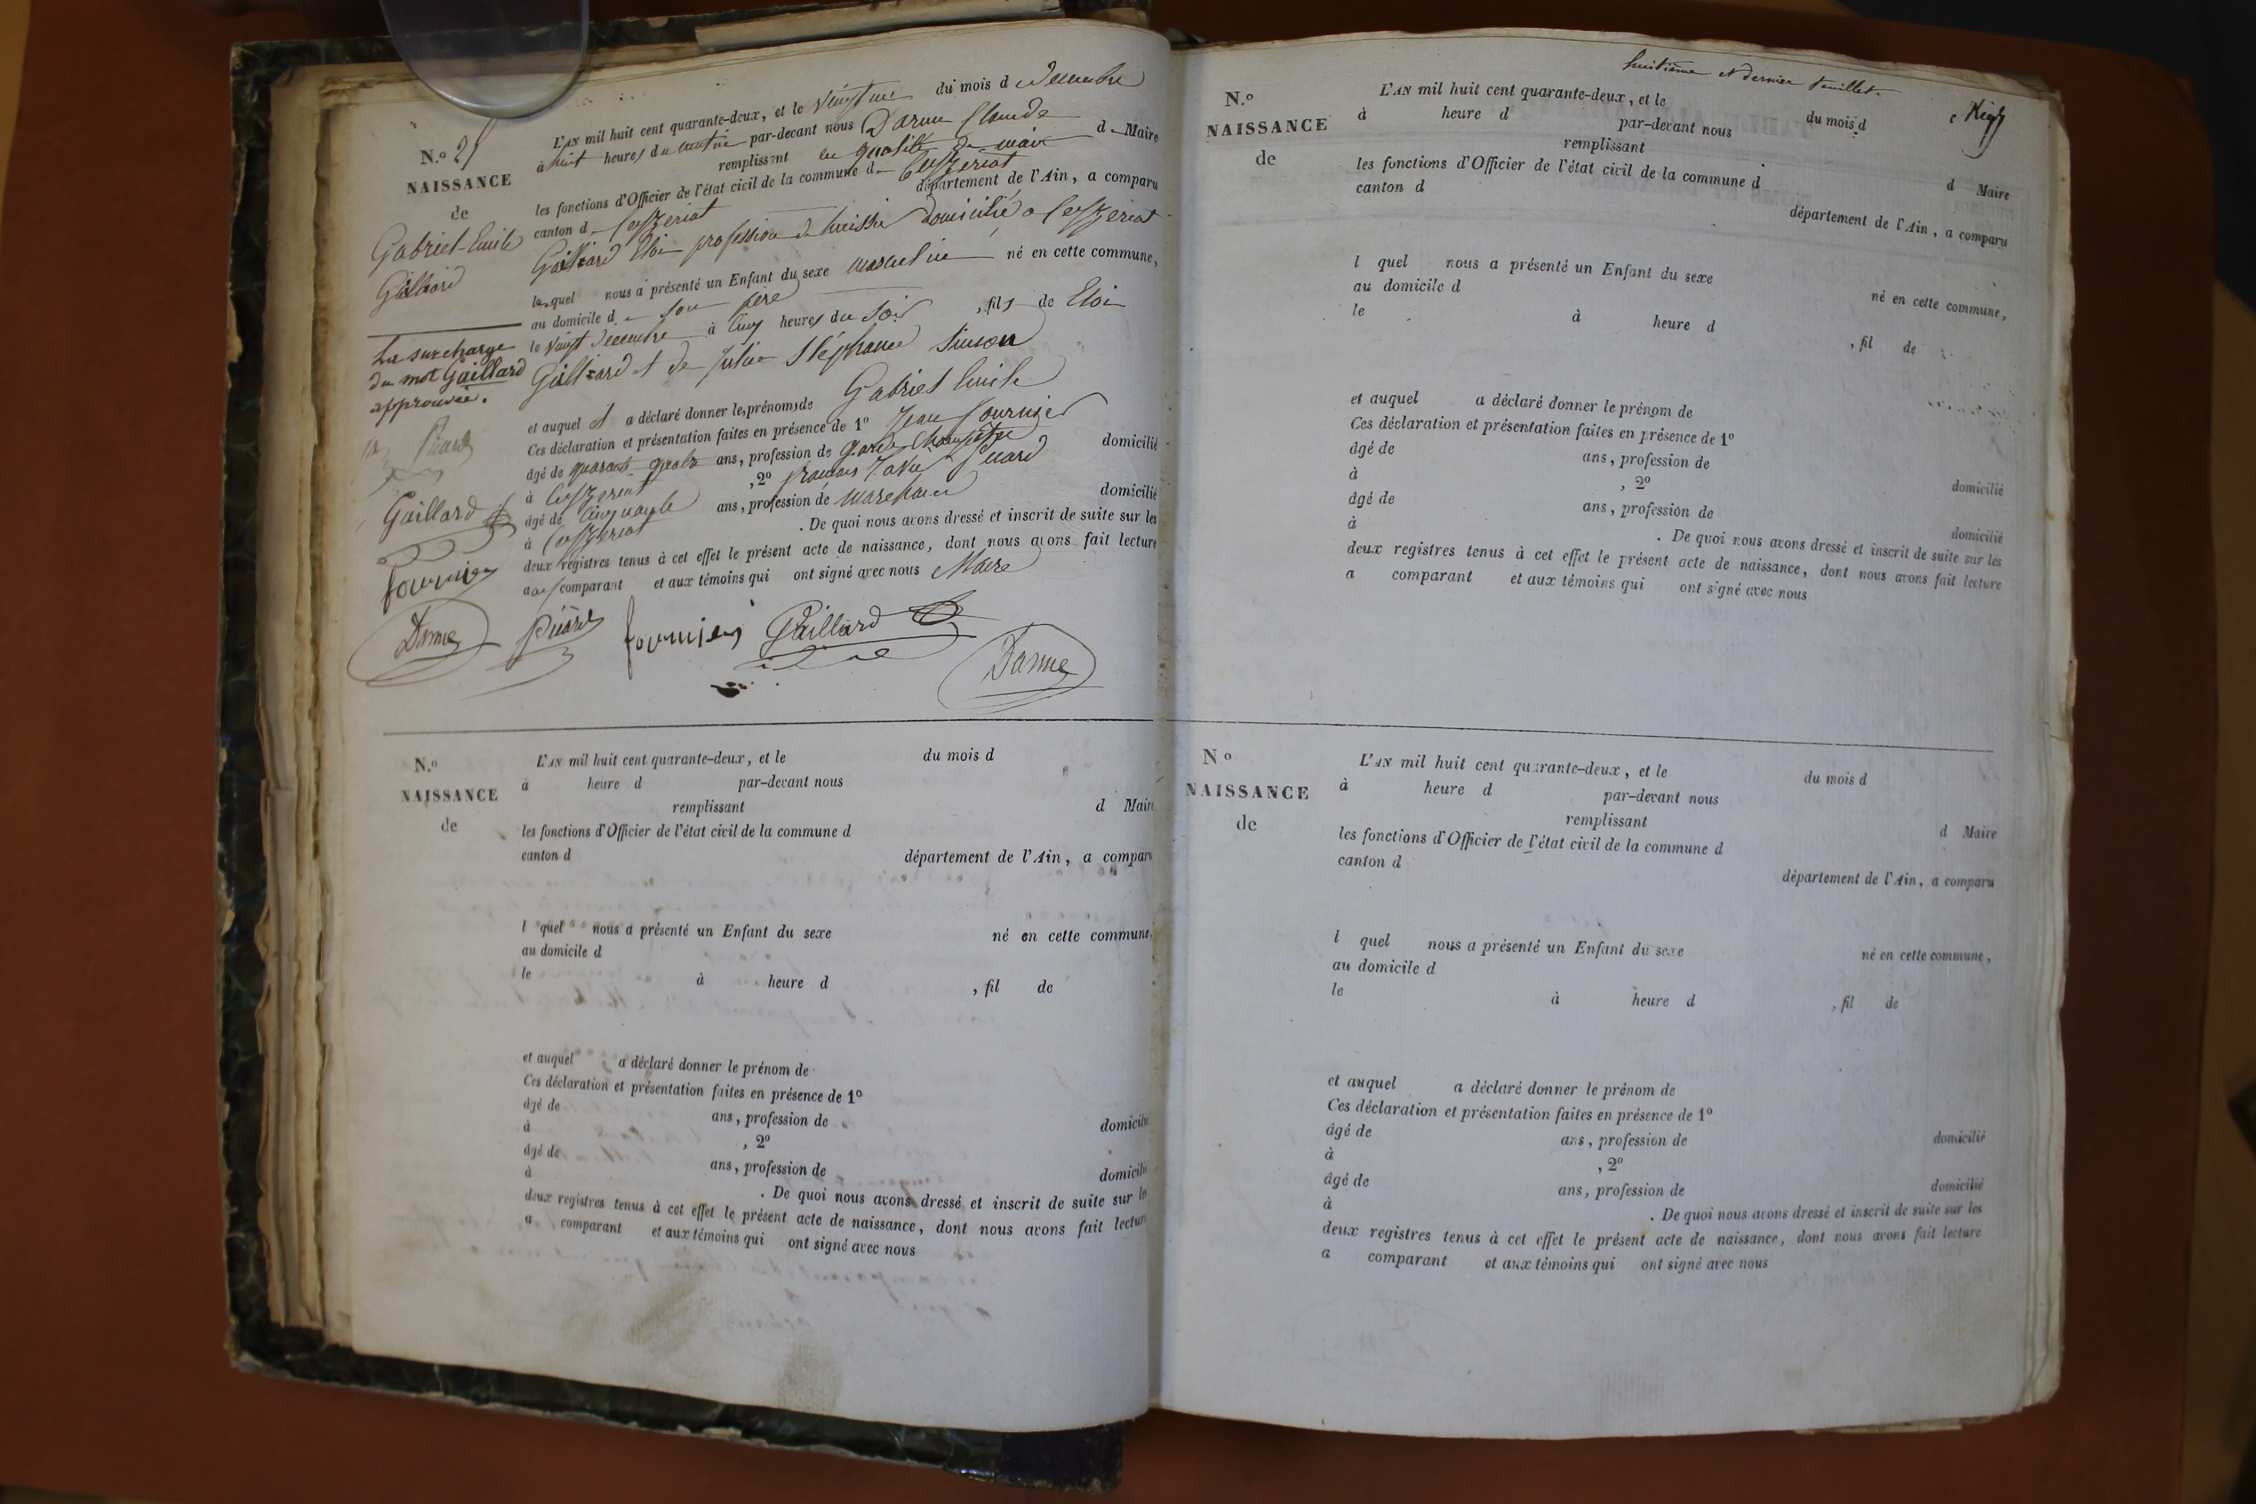 N.º 25
NAISSANCE
de
Gabriel-Emile
Gaillard
La surcharge
du mot Gaillard
approuvée.
Picard
Gaillard
fournier
Darme
L'AN mil huit cent quarante-deux, et le vingt un du mois d décembre
à huit heures du matin par-devant nous Darme Claude
remplissant en qualité de maire d Maire
les fonctions d'Officier de l'état civil de la commune d Ceyzeriat
canton d Ceyzeriat département de l'Ain, a comparu
Gaillard Eloi profession d'huissier domicilié à Ceyzeriat
lequel nous a présenté un Enfant du sexe masculin né en cette commune,
au domicile de son père
le vingt décembre à cinq heures du soir, fils de Eloi
Gaillard et de Julie Stéphanie
et auquel il a déclaré donner les prénoms de Gabriel Emile
Ces déclaration et présentation faites en présence de 1º Jean fournier
âgé de quarante quatre ans, profession de garde champêtre domicilié
à Ceyzeriat, 2º françois Xavier Picard
âgé de cinquante ans, profession de domicilié
à Ceyzeriat. De quoi nous avons dressé et inscrit de suite sur les
deux registres tenus à cet effet le présent acte de naissance, dont nous avons fait lecture
aux comparant et aux témoins qui ont signé avec nous Maire
Picard fournier Gaillard
Darme
N.º
NAISSANCE
de
L'AN mil huit cent quarante-deux, et le du mois d
à heure d par-devant nous
remplissant d Maire
les fonctions d'Officier de l'état civil de la commune d
canton d département de l'Ain, a comparu
l quel nous a présenté un Enfant du sexe né en cette commune,
au domicile d
le à heure d , fil de
et auquel a déclaré donner le prénom de
Ces déclaration et présentation faites en présence de 1º
âgé de ans, profession de domicilié
à , 2º
âgé de ans, profession de domicilié
à . De quoi nous avons dressé et inscrit de suite sur les
deux registres tenus à cet effet le présent acte de naissance, dont nous avons fait lecture
a comparant et aux témoins qui ont signé avec nous
huitième et dernier feuillet.
N.º
NAISSANCE
de
L'AN mil huit cent quarante-deux, et le du mois d
à heure d par-devant nous
remplissant d Maire
les fonctions d'Officier de l'état civil de la commune d
canton d département de l'Ain, a comparu
l quel nous a présenté un Enfant du sexe né en cette commune,
au domicile d
le à heure d , fil de
et auquel a déclaré donner le prénom de
Ces déclaration et présentation faites en présence de 1º
âgé de ans, profession de domicilié
à , 2º
âgé de ans, profession de domicilié
à . De quoi nous avons dressé et inscrit de suite sur les
deux registres tenus à cet effet le présent acte de naissance, dont nous avons fait lecture
a comparant et aux témoins qui ont signé avec nous
Nº
NAISSANCE
de
L'AN mil huit cent quarante-deux, et le du mois d
à heure d par-devant nous
remplissant d Maire
les fonctions d'Officier de l'état civil de la commune d
canton d département de l'Ain, a comparu
l quel nous a présenté un Enfant du sexe né en cette commune,
au domicile d
le à heure d , fil de
et auquel a déclaré donner le prénom de
Ces déclaration et présentation faites en présence de 1º
âgé de ans, profession de domicilié
à , 2º
âgé de ans, profession de domicilié
à . De quoi nous avons dressé et inscrit de suite sur les
deux registres tenus à cet effet le présent acte de naissance, dont nous avons fait lecture
a comparant et aux témoins qui ont signé avec nous